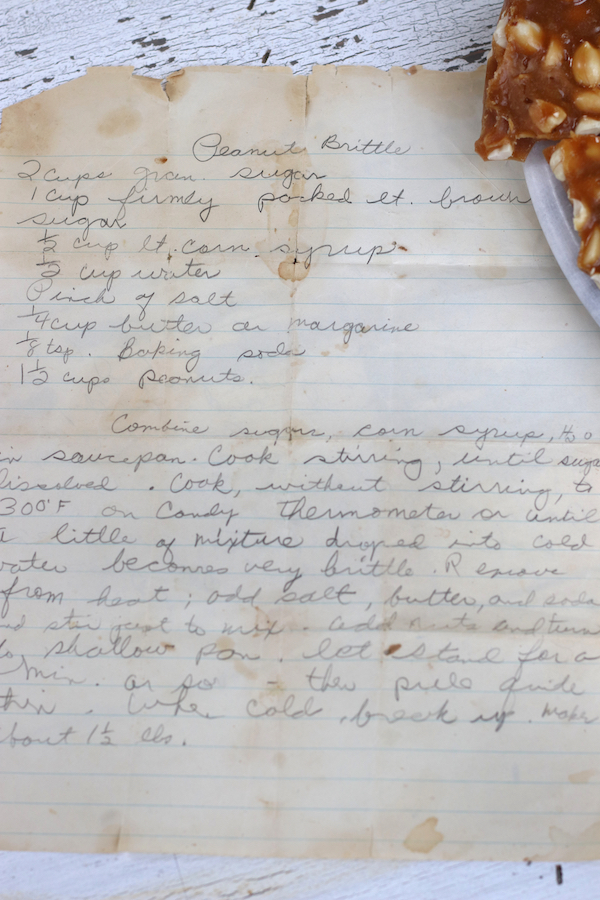 Peanut Brittle
2 cups gran. sugar
1 cup firmly packed lt. brown
sugar
½ cup lt. corn syrup
½ cup water
Pinch of salt
¼ cup butter or margarine
⅛ tsp. Baking soda
1½ cups peanuts.
Combine sugars, corn syrup, H₂O
in saucepan. Cook stirring, until sugar
dissolved. Cook, without stirring, to
300°F on Candy Thermometer or until
a little of mixture dropped into cold
water becomes very brittle. Remove
from heat; add salt, butter, and soda
and stir just to mix. add nuts and turn
to shallow pan. let stand for a
min. or so - then pull quite
thin. When cold, break up. Makes
about 1½ lbs.